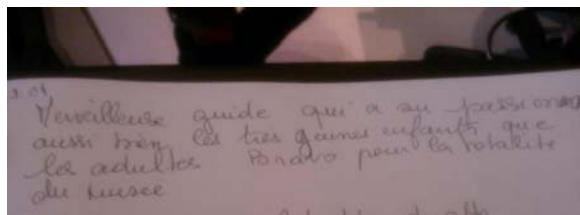 Merveilleuse guide qui a su passionner
aussi bien les tres jeunes enfants que
les adultes Bravo pour la totalité
du musee